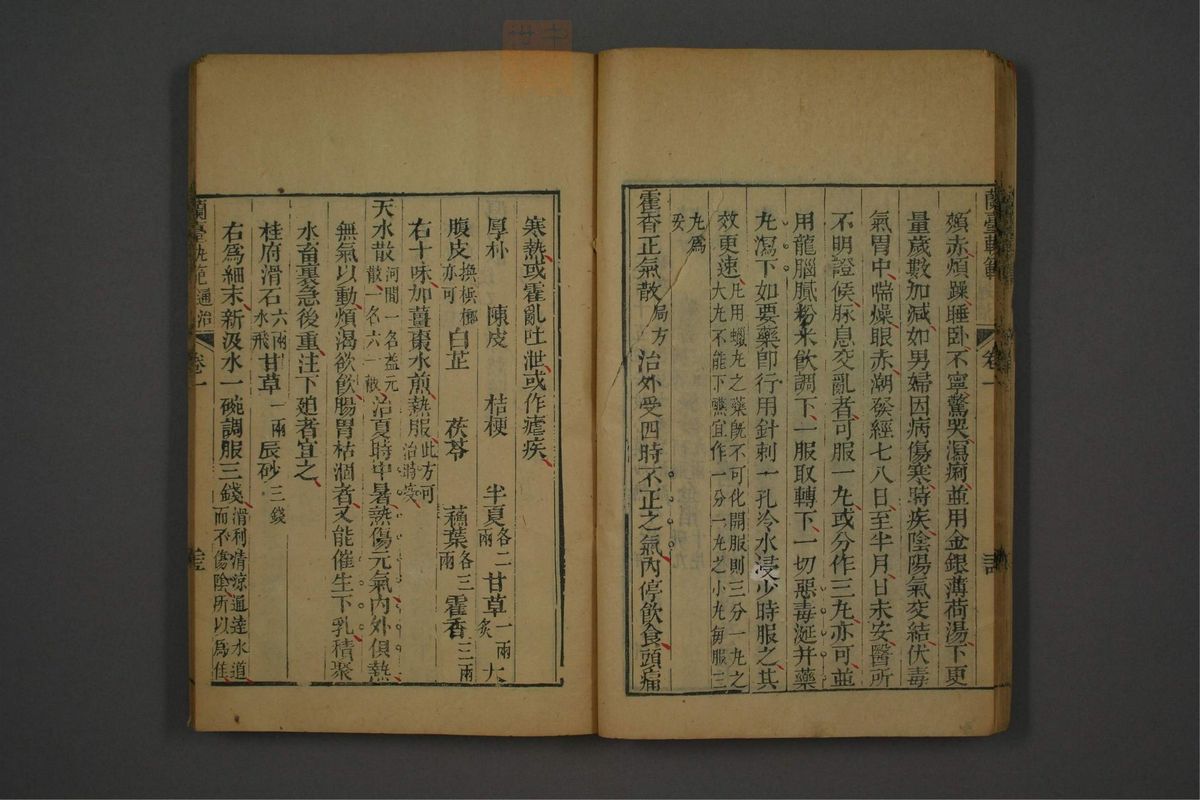 蘭臺軌範
卷一
頰赤煩躁睡卧不寧驚哭瀉痢並用金銀薄荷湯下更
量歲數加減如男婦因病傷寒時疾陰陽氣交結伏毒
氣胃中喘燥眼赤潮發經七八日至半月日未安醫所
不明證候脉息交亂者可服一丸或分作三丸亦可並
用龍腦膩粉米飲調下一服取轉下一切惡毒涎并藥
丸瀉下如要藥卽行用針刺一孔冷水浸少時服之其
效更速凡用蠟丸之藥旣不可化開服則三分一丸之
大丸不能下嚥宜作一分一丸之小丸每服三
丸爲
妥
霍香正氣散局方治外受四時不正之氣內停飲食頭痛
寒熱或霍亂吐泄或作瘧疾
厚朴 陳皮 桔梗 半夏各二兩 甘草一兩炙 大
腹皮換檳榔亦可 白芷 茯苓 蘓葉各三兩 霍香三兩
右十味加薑棗水煎熱服此方可治時疫
天水散河間一名益元散一名六一散治夏時中暑熱傷元氣內外俱熱
無氣以動煩渴欲飲腸胃枯涸者又能催生下乳積聚
水畜裏急後重注下廹者宜之
桂府滑石六兩水飛 甘草一兩 辰砂三錢
右爲細末新汲水一碗調服三錢滑利淸凉通達水道
而不傷陰所以爲佳
蘭臺軌範
通治
卷一